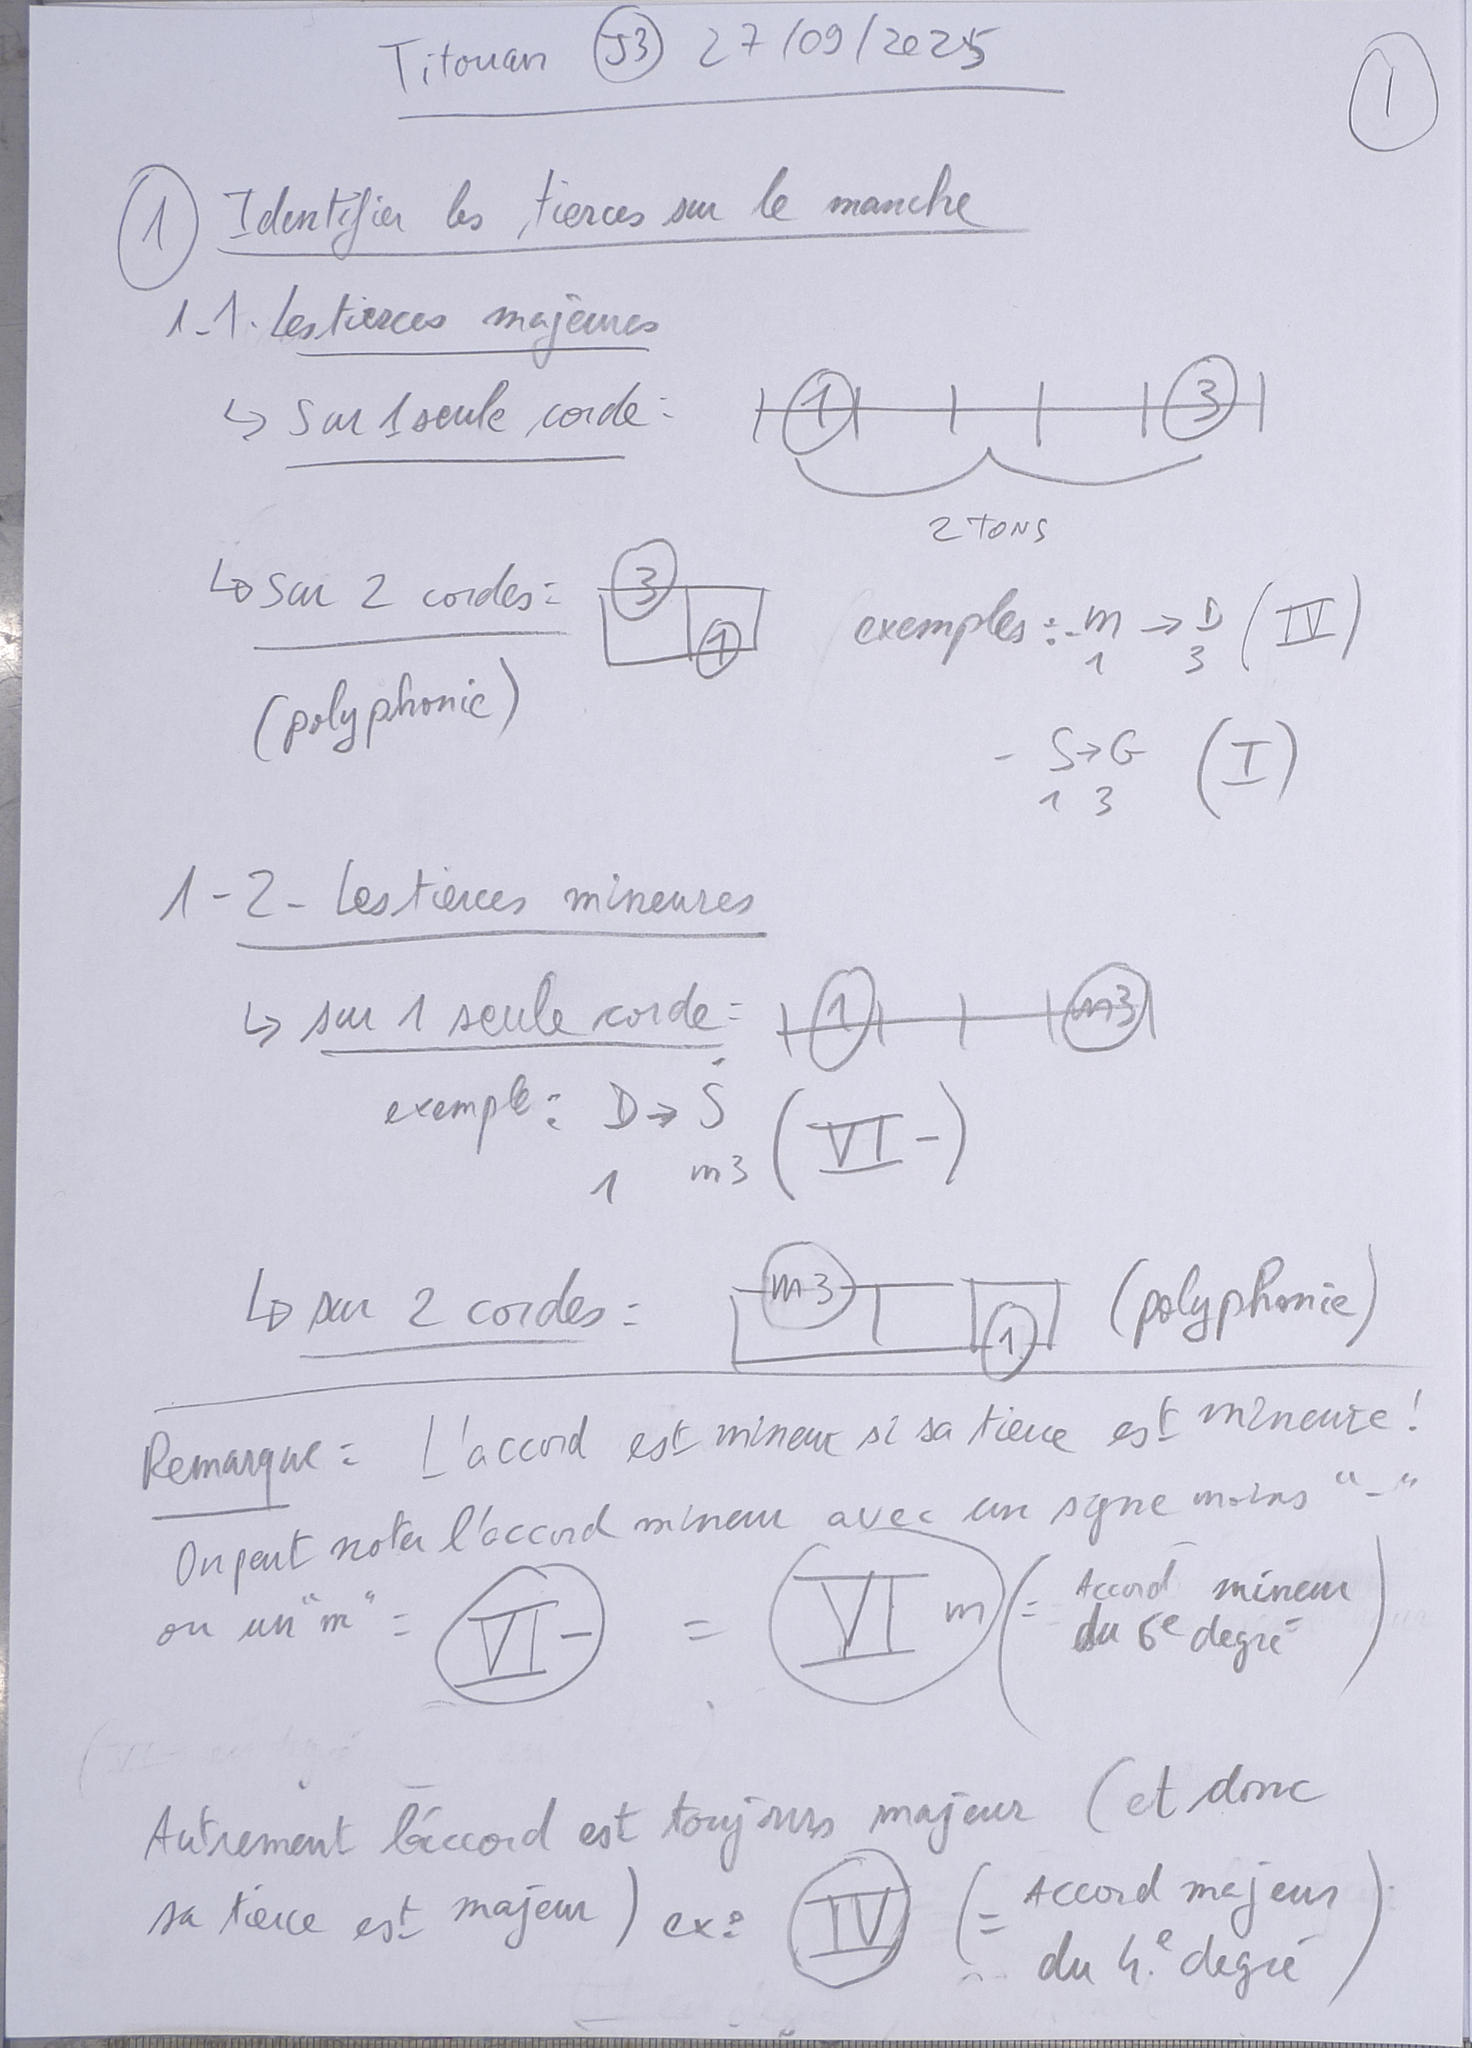 Titouan J3 27/09/2025
1
1 Identifier les tierces sur le manche
1-1. Les tierces majeures
↳ Sur 1 seule corde :
1 3
2 TONS
↳ sur 2 cordes :
3
1
(polyphonie)
exemples : - m → D (IV)
1 3
- S → G (I)
1 3
1-2- Les tierces mineures
↳ sur 1 seule corde :
1 m3
exemple : D → Ṡ (VI-)
1 m3
↳ sur 2 cordes :
m3
1
(polyphonie)
Remarque : L'accord est mineur si sa tierce est mineure !
On peut noter l'accord mineur avec un signe moins "-"
ou un "m" = VI- = VI m (= Accord mineur
du 6e degré)
Autrement l'accord est toujours majeur (et donc
sa tierce est majeur) ex : IV (= Accord majeur
du 4e degré)